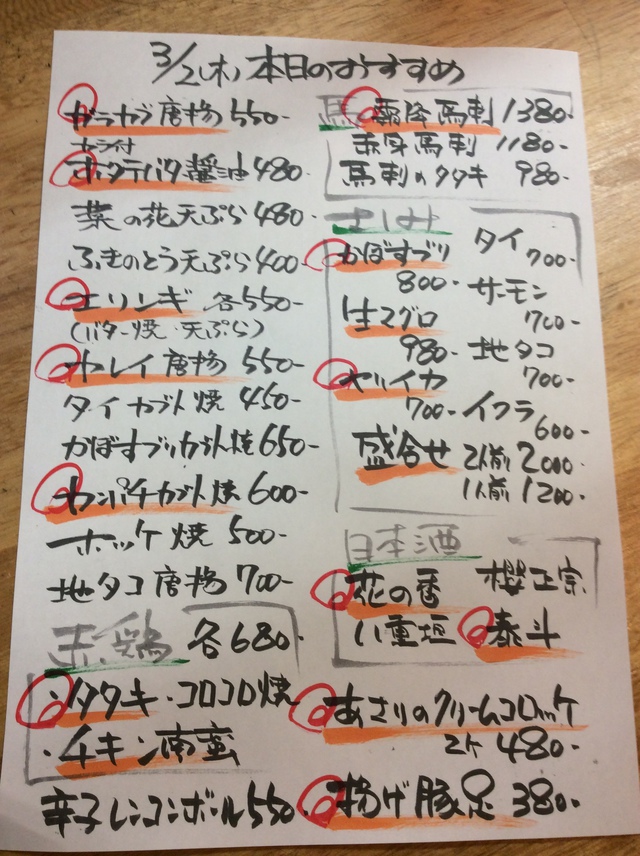 3/2(木)本日のおすすめ
ガラカブ唐揚 550-
カラ付
ホタテバタ醤油 480.
菜の花天ぷら 480.
ふきのとう天ぷら 400-
エリンギ 各550-
(バター焼・天ぷら)
カレイ唐揚 550-
タイカブト焼 450-
かぼすブリカブト焼 650-
カンパチカブト焼 600-
ホッケ焼 500-
地タコ唐揚 700-
赤鶏 各680.
・タタキ・コロコロ焼
・チキン南蛮
辛子レンコンボール 550.
馬 霜降馬刺 1380-
赤身馬刺 1180-
馬刺のタタキ 980-
さしみ
かぼすブリ 800-
生マグロ 980-
ヤリイカ 700-
タイ 700-
サーモン 700-
地タコ 700-
イクラ 600-
盛合せ 2人前 2000-
1人前 1200-
日本酒
花の香 櫻正宗
八重垣 泰斗
あさりのクリームコロッケ
2ケ 480-
揚げ豚足 380-